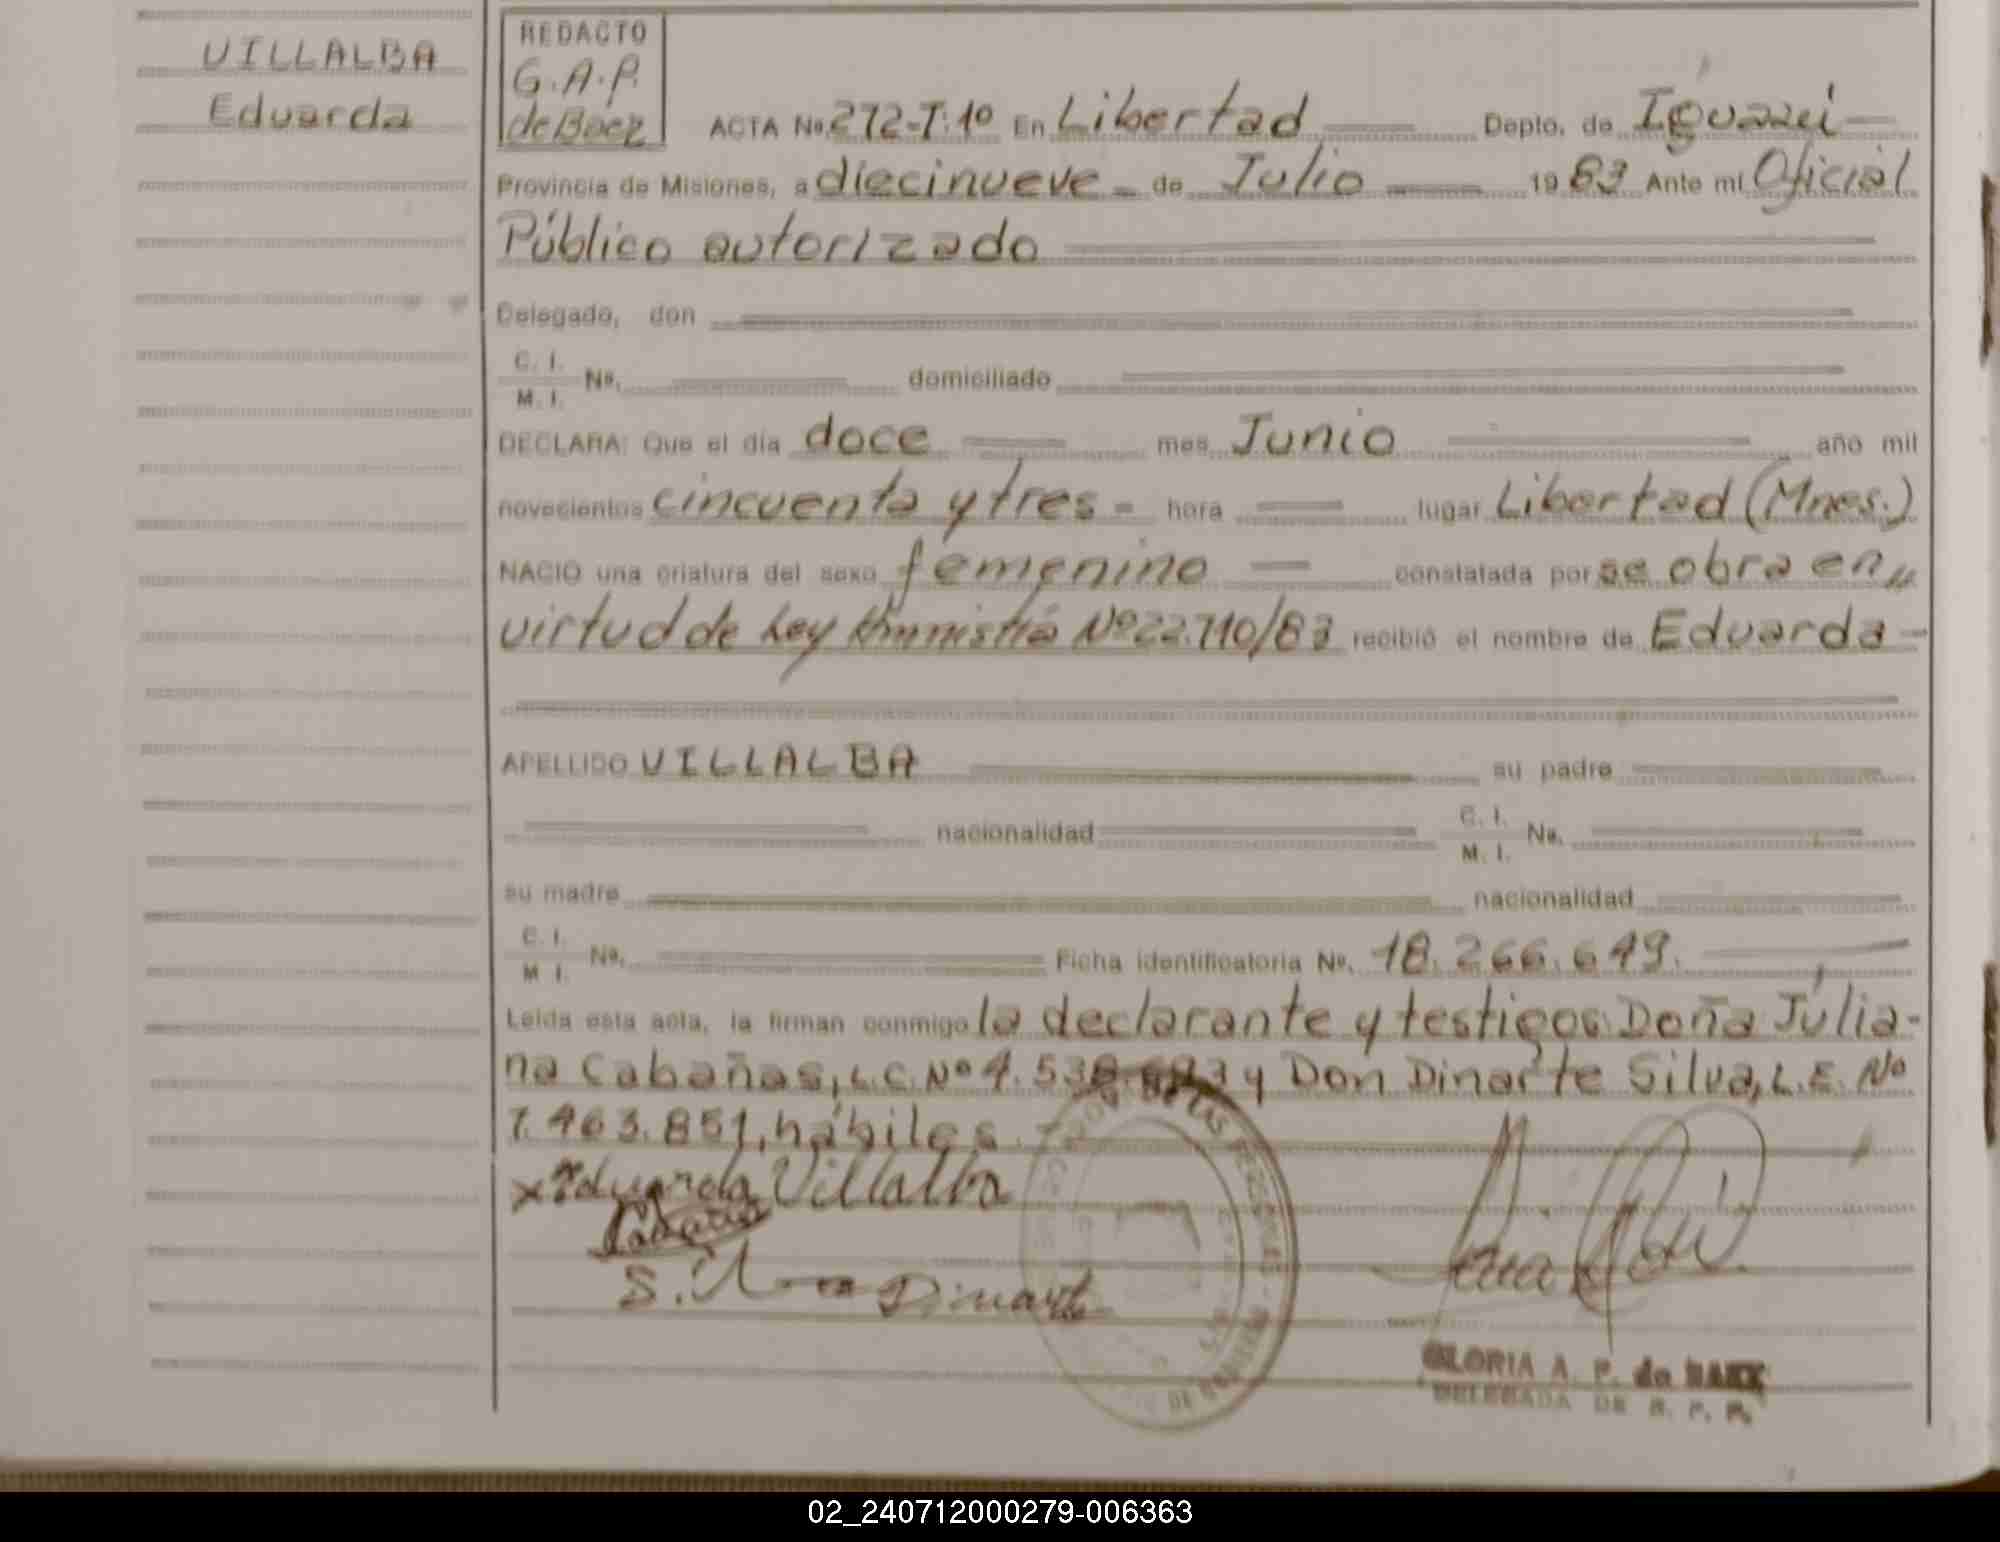 VILLALBA
Eduarda
REDACTO
G.A.P.
de Baez
ACTA No. 272-T:1º En Libertad Depto. de Iguazú
Provincia de Misiones, a diecinueve de Julio 1983 Ante mi Oficial
Público autorizado
Delegado, don
C. I.
M. I. No. domiciliado
DECLARA: Que el día doce mes Junio año mil
novecientos cincuenta y tres - hora lugar Libertad (Mnes.)
NACIO una criatura del sexo femenino constatada por se obra en
virtud de Ley Amnistía Nº 22.710/83 recibió el nombre de Eduarda
APELLIDO VILLALBA su padre
nacionalidad C. I.
M. I. No.
su madre nacionalidad
C. I.
M. I. No. Ficha identificatoria No. 18.266.649.
Leída esta acta, la firman conmigo la declarante y testigos Doña Julia-
na Cabañas, L.C. Nº y Don Dinarte Silva, L.E. Nº
7.463.851, hábiles.
x Eduarda Villalba
Cabañas
S. Dinarte
DE LAS PERSONAS
GLORIA A. P. de BAEZ
DELEGADA DE R. P. P.
02_240712000279-006363